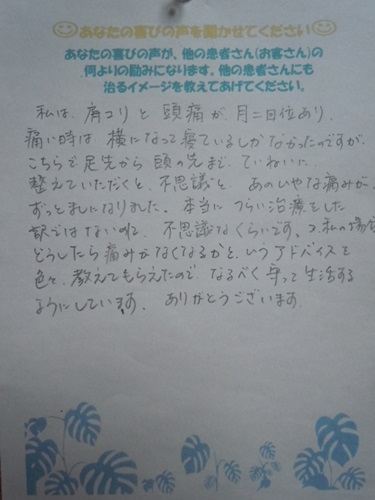 あなたの喜びの声を聞かせてください
あなたの喜びの声が、他の患者さん(お客さん)の
何よりの励みになります。他の患者さんにも
治るイメージを教えてあげてください。
私は、肩コリと頭痛が、月二回位あり、
痛い時は横になって寝ているしかなかったのですが、
こちらで足先から頭の先まで、ていねいに
整えていただくと、不思議と、あのひやな痛みが、
ずっとましになりました。本当に、つらい治療をした
訳ではないのに、不思議なくらいです。又、私の場合
どうしたら痛みがなくなるかと、いうアドバイスを
色々、教えてもらえたので、なるべく守って生活する
ようにしています。ありがとうございます